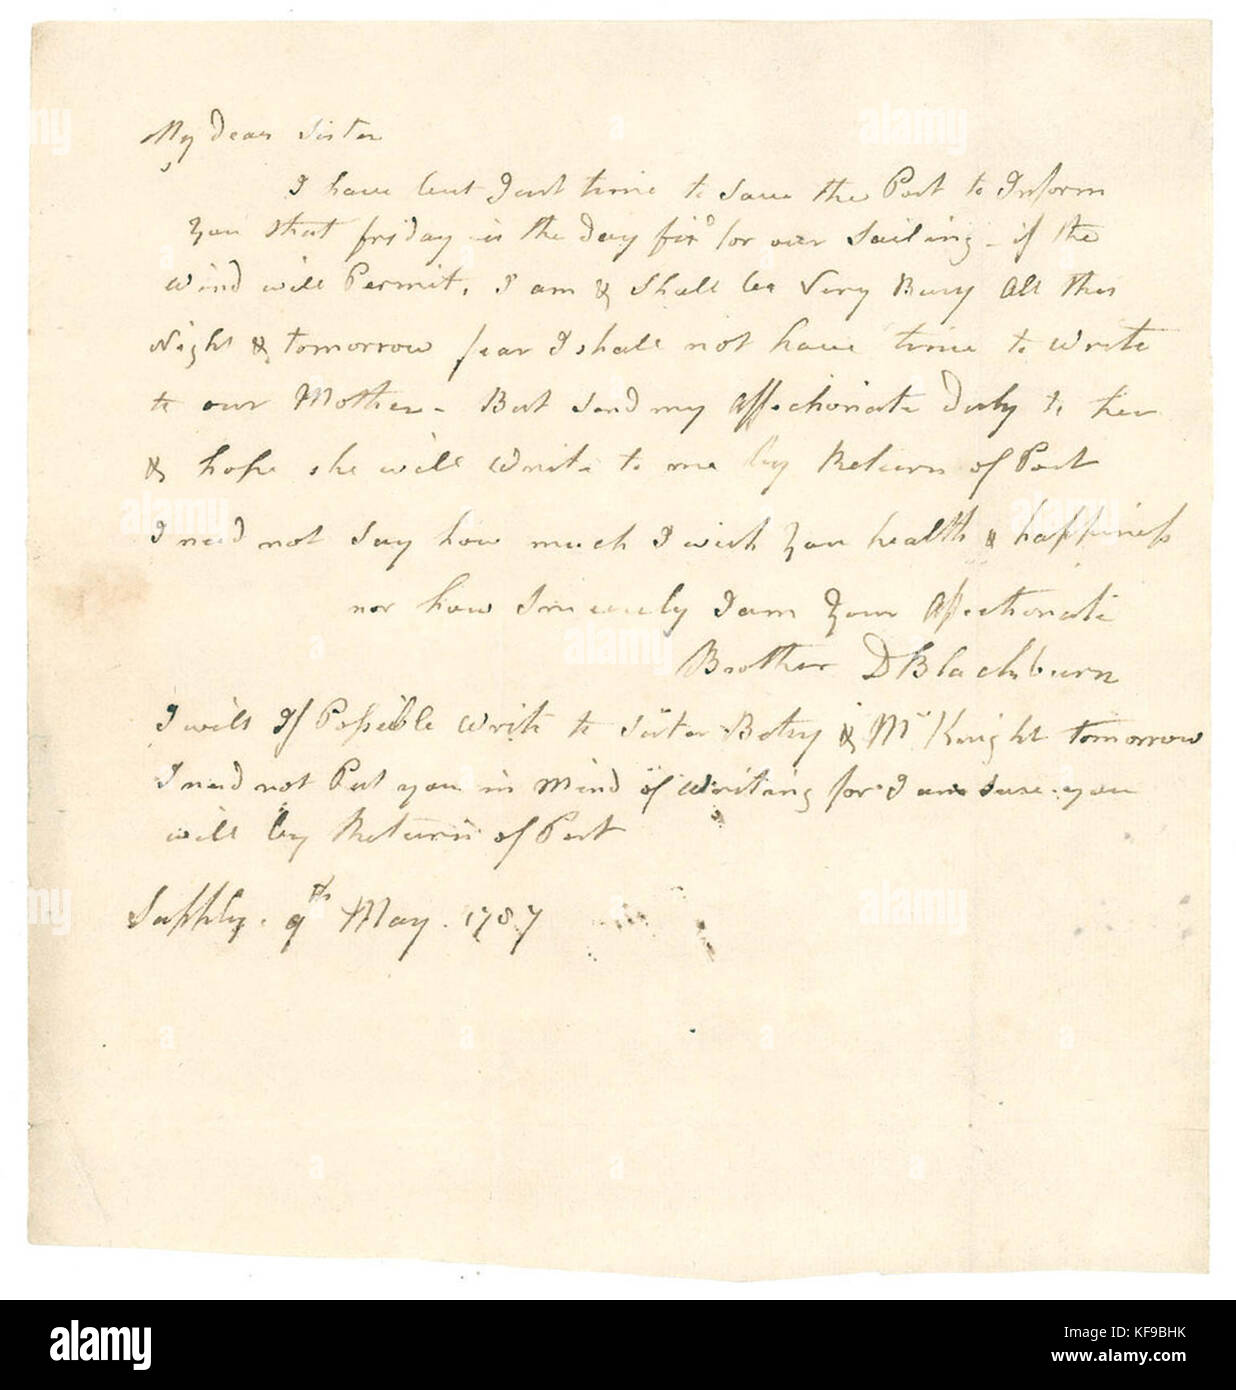 My Dear Sister
I have but Just time to Save the Post to Inform
You that friday is the Day fix'd for our Sailing - if the
Wind will Permit, I am & Shall be Very Busy All this
Night & tomorrow fear I shall not have time to Write
to our Mother - But Send my Affectionate Duty to her
& hope she will Write to me by Return of Post
I need not Say how much I wish You health & happiness
nor how Sincerely I am Your Affectionate
Brother DBlackburn
I will If Possible Write to Sister Betsy & Mr Knight tomorrow
I need not Put you in Mind of Writing for I am Sure you
will by Return of Post
Supply. 9th May. 1787
alamy
Image ID: KF9BHK
www.alamy.com